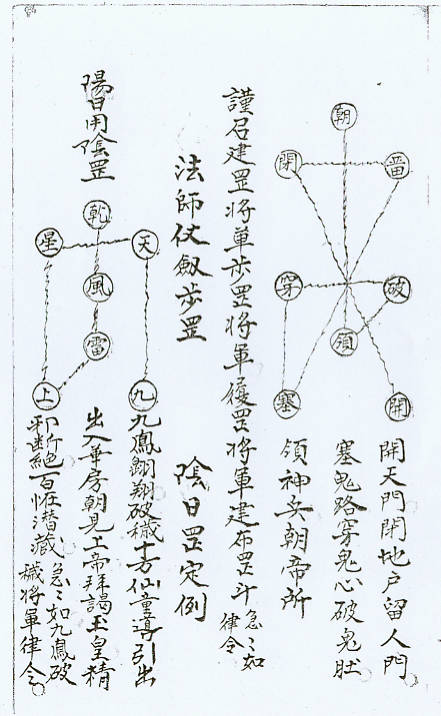 朝
閉 畱
穿 破
領
塞 開
開天門閉地户留人門
塞鬼路穿鬼心破鬼肚
領神兵朝帝所
謹召建罡將軍步罡將軍履罡將軍建布罡斗急〻如律令
法師仗劍步罡
陰日罡定例
陽日用陰罡
乾
星 天
風
雷
上 九
九鳳翺翔破穢十方仙童導引出
出入華房朝見上帝拜謁玉皇精
邪斷絕百怪潛藏急〻如九鳳破穢將軍律令